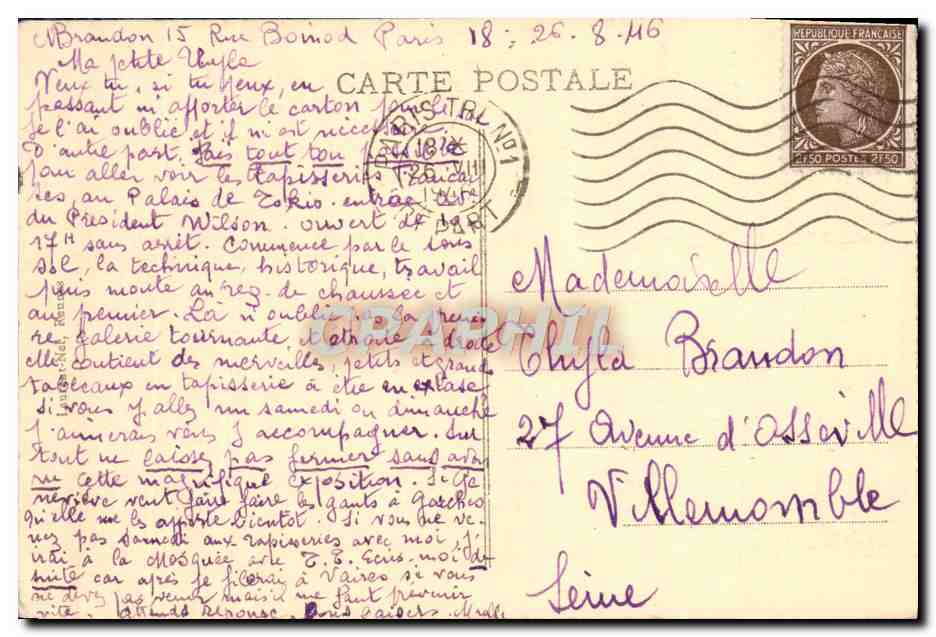 Brandon 15 Rue Boinod Paris 18 : 26.8.46
Ma petite
Veux tu, si tu peux, en
CARTE POSTALE
passant m'apporter le carton
je l'ai oublié et il m'est
D'autre part, fais tout ton possible
pour aller voir les tapisseries
au Palais de Tokio entrée
du President Wilson. ouvert de 10 à
17H sans arrêt. Commence par le sous
sol, la technique, historique, travail
puis monte au rez-de chaussée et
au premier. Là n'oublie pas la
galerie tournante, et étroite à droite
elle contient des merveilles, petits et grands
tableaux en tapisserie à être en extase
Si vous y allez un samedi ou dimanche
J'aimerais vous y accompagner. Sur
tout ne laisse pas fermer sans avoir
vu cette magnifique exposition. Si Ge
neviève veut faire faire les gants à
qu'elle me les apporte bientot. Si vous ne ve
nez pas samedi aux tapisseries avec moi, j'i
rai à la Mosquée avec T.E. Ecris-moi de
suite car après je filerai à Vaires si vous
ne devez pas venir mais il me faut prevenir
vite. Attends reponse. Bons baisers.
Laurent-Nel, Rennes
PARIS TRI No1
DEPART
REPUBLIQUE FRANCAISE
2F50 POSTES 2F50
CPAPHIL
Mademoiselle
Brandon
27 Avenue d'
Villemomble
Seine